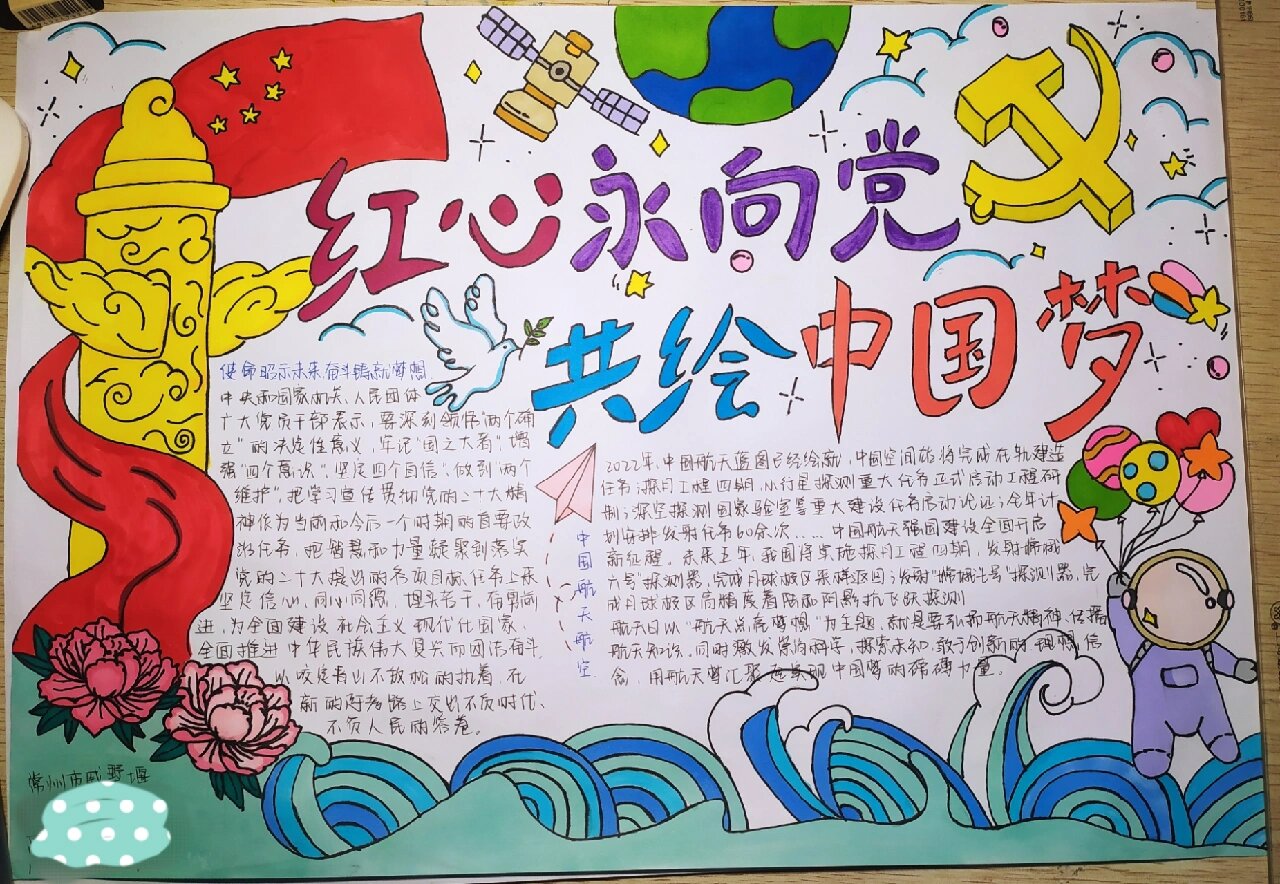 红心永向党
共绘中国梦
使命昭示未来奋斗铸就梦想
中央和国家机关、人民团体
广大党员干部表示，要深刻领悟“两个确
立”的决定性意义，牢记“国之大者”，增
强“四个意识”、坚定四个自信”、做到“两个
维护”，把学习宣传贯彻党的二十大精
神作为当前和今后一个时期的首要政
治任务，把智慧和力量凝聚到落实
党的二十大提出的各项目标任务上来
坚定信心、同心同德，埋头苦干，奋勇前
进，为全面建设社会主义现代化国家、
全面推进中华民族伟大复兴而团结奋斗
以咬定青山不放松的执着，在
新的赶考路上交出不负时代、
不负人民的答卷。
中国航天航空
2022年，中国航天蓝图已经绘就，中国空间站将完成在轨建造
任务；探月工程四期、小行星探测重大任务正式启动工程研
制；深空探测国家实验室等重大建设任务启动论证；全年计
划安排发射任务60余次……中国航天强国建设全面开启
新征程。未来五年，我国将实施探月工程四期，发射嫦娥
六号”探测器，完成月球极区采样返回；发射“嫦娥七号”探测器，完
成月球极区高精度着陆和阴影坑飞跃探测
航天日以“航天点亮梦想”为主题，就是要弘扬航天精神、传播
航天知识，同时激发崇尚科学、探索未知、敢于创新的理想信
念，用航天梦汇聚起实现中国梦的磅礴力量。
常州市戚墅堰